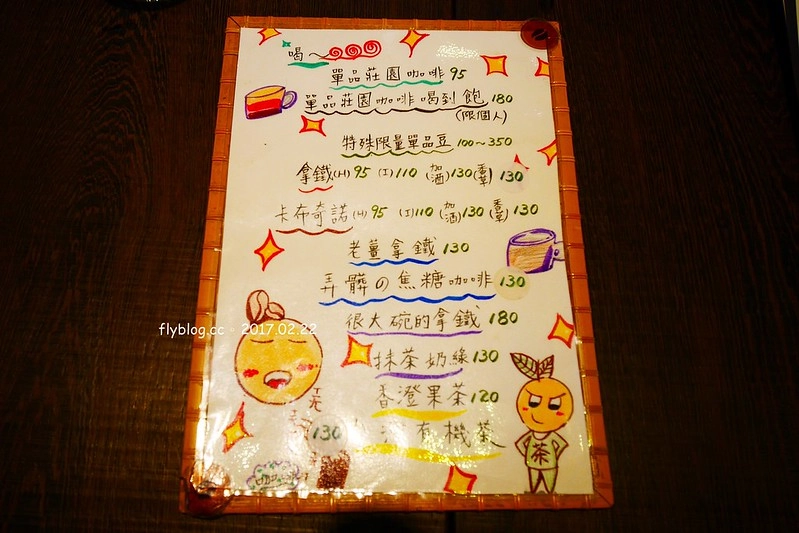 喝~
單品莊園咖啡 95
單品莊園咖啡喝到飽 180
(限個人)
特殊限量單品豆 100~350
拿鐵(H) 95 (I) 110 (加酒) 130 (香草) 130
卡布奇諾(H) 95 (I) 110 (加酒) 130 (香草) 130
老薑拿鐵 130
弄髒の焦糖咖啡 130
很大碗的拿鐵 180
抹茶奶綠 130
香澄果茶 120
有機茶
130
茶
flyblog.cc 2017.02.22